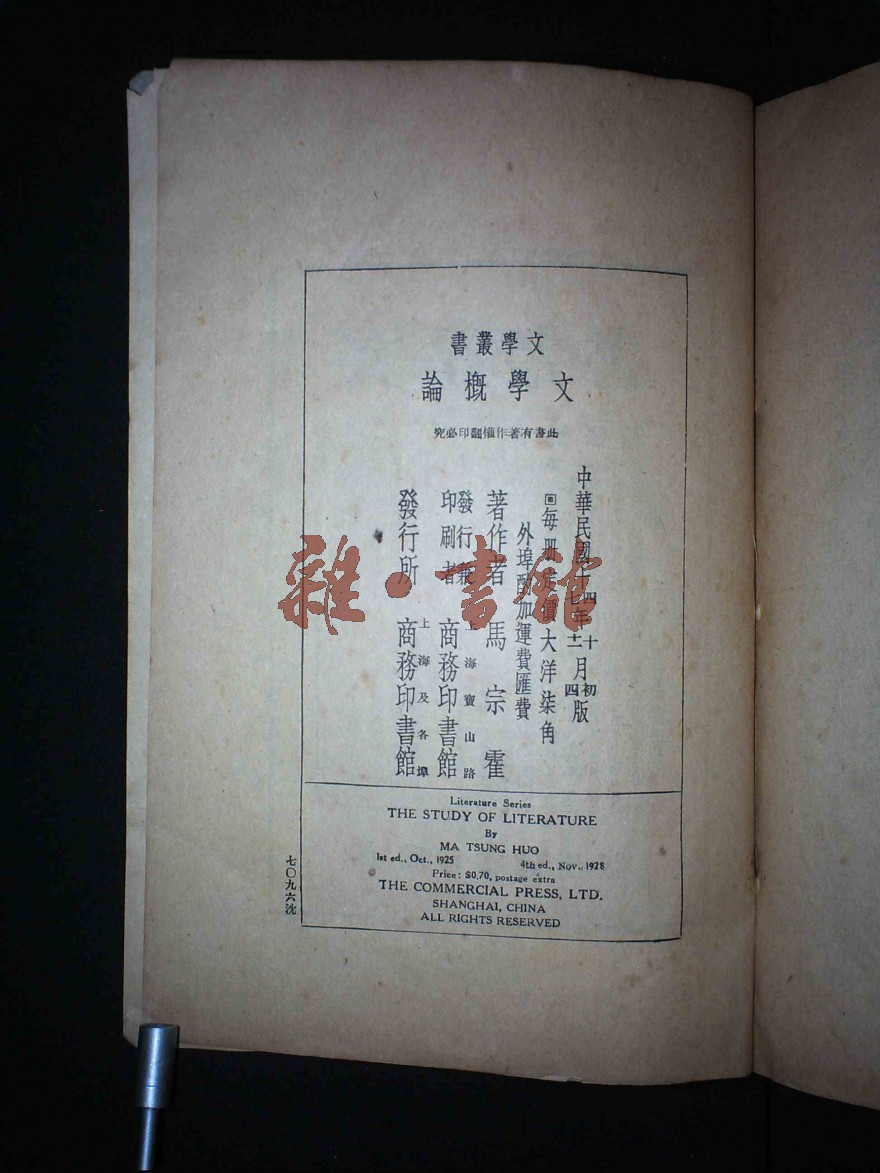 文學叢書
文學概論
此書有著作權翻印必究
中華民國十四年十月初版
十七年十一月四版
回每册定價大洋柒角
外埠酌加運費匯費
著作者 馬宗霍
發行兼印刷者 上海寶山路 商務印書館
發行所 上海及各埠 商務印書館
Literature Series
THE STUDY OF LITERATURE
By
MA TSUNG HUO
1st ed., Oct., 1925 4th ed., Nov., 1928
Price: $0.70, postage extra
THE COMMERCIAL PRESS, LTD.
SHANGHAI, CHINA
ALL RIGHTS RESERVED
七〇九六沈
雜·書館